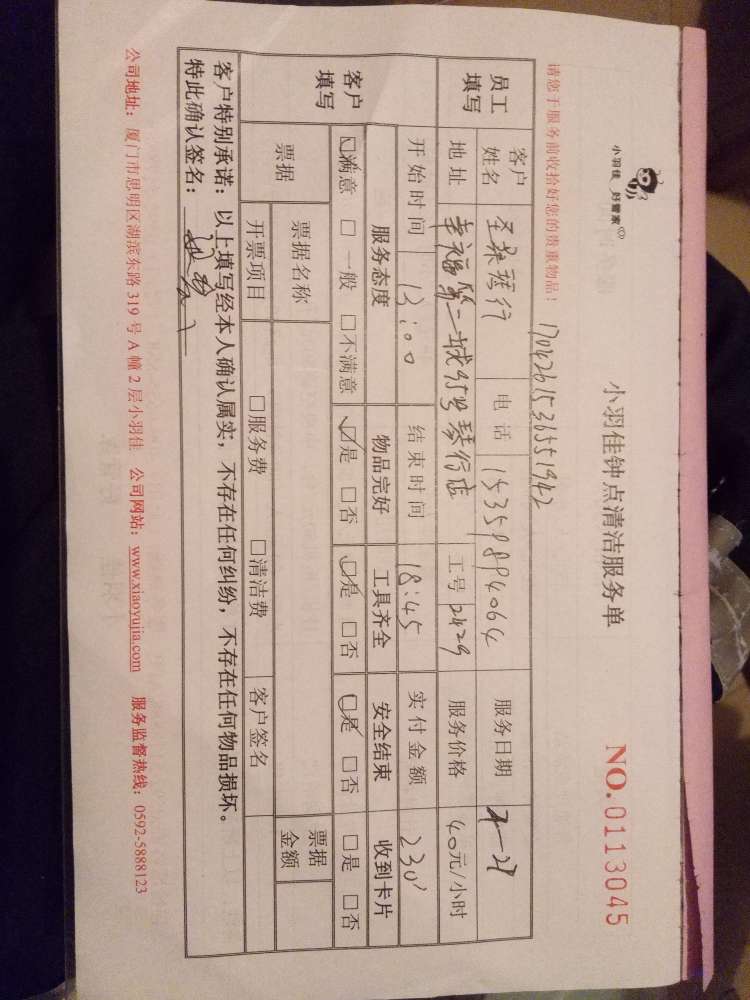 小羽佳 好管家
小羽佳钟点清洁服务单
NO.0113045
请您于服务前收拾好您的贵重物品！
17042615365551942
员工填写 客户姓名 圣燊琴行 电话 15359894064 服务日期 4-27
地址 幸福第二城95号琴行店 工号 2429 服务价格 40元/小时
开始时间 13:00 结束时间 18:45 实付金额 230
客户填写 服务态度 物品完好 工具齐全 安全结束 收到卡片
☑满意 □一般 □不满意 ☑是 □否 ☑是 □否 ☑是 □否 □是 □否
票据 票据名称 票据金额
开票项目 □服务费 □清洁费 客户签名
客户特别承诺：以上填写经本人确认属实，不存在任何纠纷，不存在任何物品损坏。
特此确认签名：
公司地址：厦门市思明区湖滨东路 319 号 A 幢 2 层小羽佳 公司网站：www.xiaoyujia.com 服务监督热线：0592-5888123